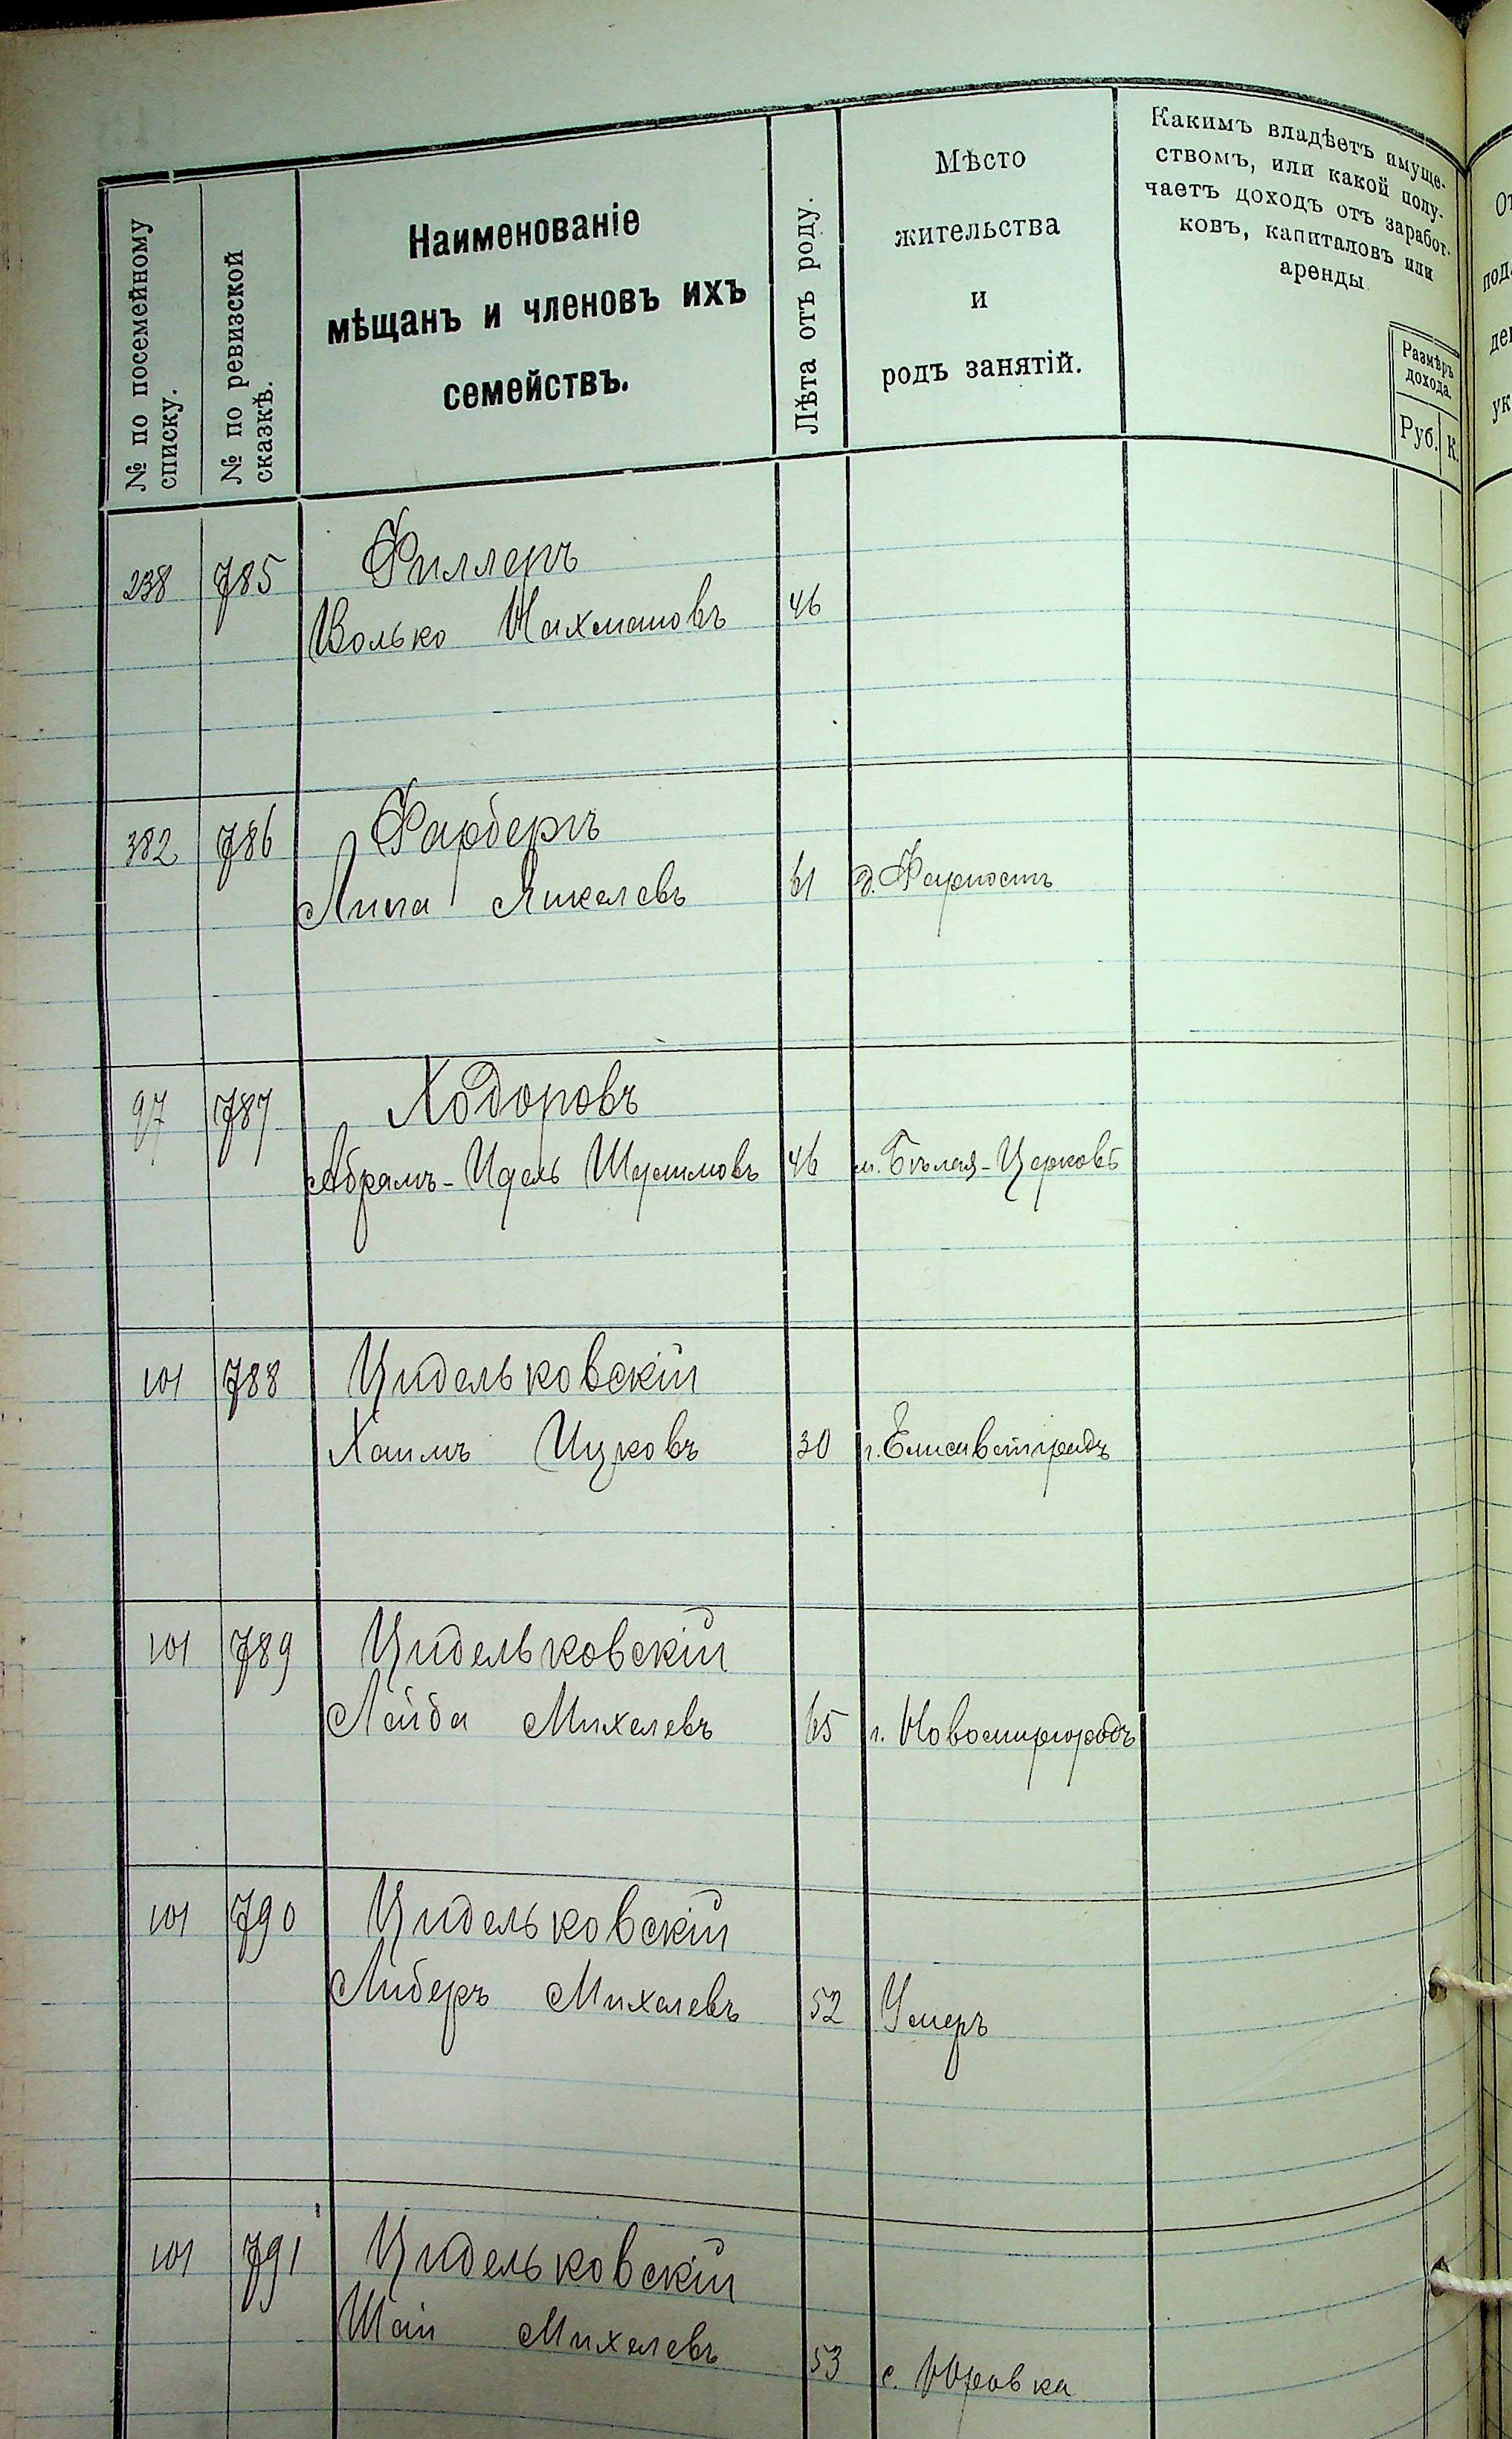 № по посемейному
списку.
№ по ревизской
сказкѣ.
Наименованіе
мѣщанъ и членовъ ихъ
семействъ.
Лѣта отъ роду.
Мѣсто
жительства
и
родъ занятій.
Какимъ владѣетъ имуще-
ствомъ, или какой полу-
чаетъ доходъ отъ заработ-
ковъ, капиталовъ или
аренды
Размѣръ
дохода.
Руб. К.
238 785 Филлеръ
Волько Нахмановъ 46
382 786 Фарберъ
Липа Янкелевъ 61
97 787 Ходоровъ
Абрамъ-Идель Шулимовъ 46 м. Бѣлая-Церковь
101 788 Цидельковскій
Хаимъ Ицковъ 30 г. Елисаветградъ
101 789 Цидельковскій
Лейба Михелевъ 65 г. Новомиргородъ
101 790 Цидельковскій
Либеръ Михелевъ 52 Умеръ
101 791 Цидельковскій
Шая Михелевъ 53 с. Юровка